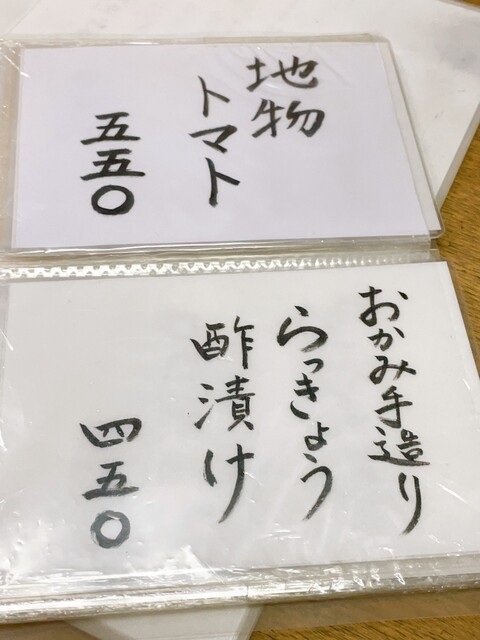 地物
トマト
五五〇
おかみ手造り
らっきょう
酢漬け
四五〇